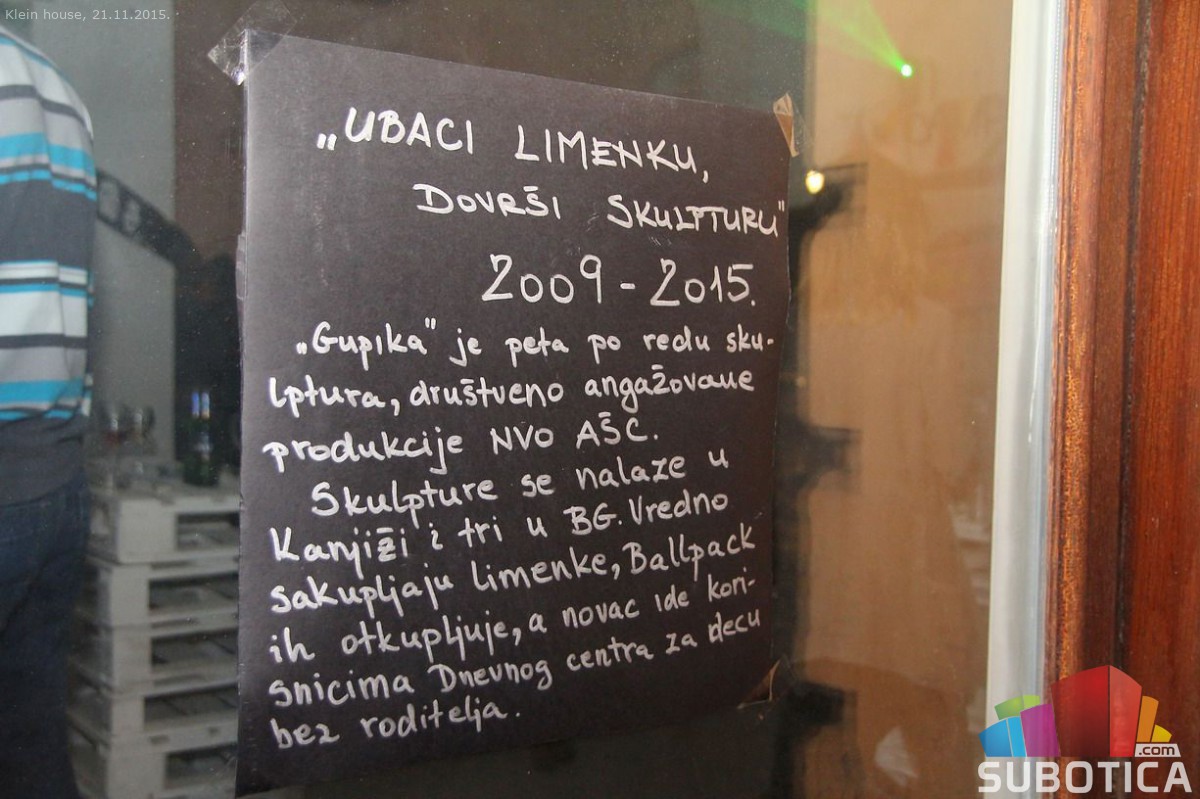 Klein house, 21.11.2015.
„UBACI LIMENKU,
DOVRŠI SKULPTURU"
2009-2015.
„Gupika" je peta po redu sku-
lptura, društveno angažovane
produkcije NVO AŠC.
Skulpture se nalaze u
Kanjiži i tri u BG. Vredno
sakupljaju limenke, Ballpack
ih otkupljuje, a novac ide kori-
snicima Dnevnog centra za decu
bez roditelja.
.com
SUBOTICA